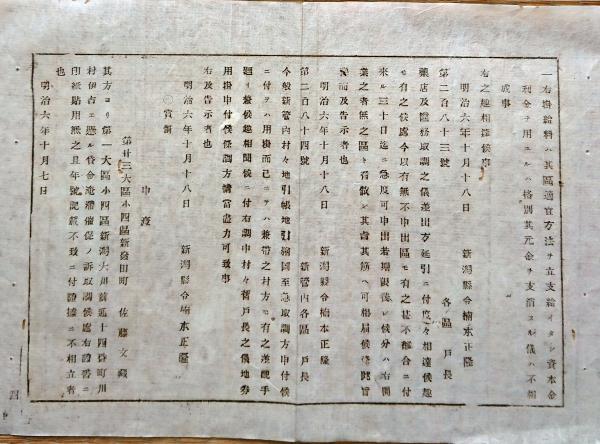 一右掛給料ハ其區適宜方法ヲ立支給イタシ資本金
利金ヲ用エルハ格別其元金ヲ支消スル儀ハ不相
成事
右之趣相達候事
明治六年十月十八日 新潟縣令楠本正隆
第二百八十三號 各區 戸長
藥店及醫務取調之儀差出方延引ニ付度々相達候趣
モ有之候處今以有無不申出區モ有之甚不都合ニ付
來ル三十日迄ニ急度可申出若期限後レ候分ハ右開
業之者無之區ト看做シ其書其筋ヘ可相届候條此旨
而及告示者也
明治六年十月十八日 新潟縣令楠本正隆
第二百八十四號 新管内各區 戸長
今般新管内村々地引帳地引繪圖至急取調方申付候
ニ付テハ用掛而已ニテハ兼帶之村方モ有之差
廻リ兼候趣相聞候ニ付右調中村々舊戸長之儀地券
用掛申付候條調方勵當盡力可致事
右及告示者也
明治六年十月十八日 新潟縣令楠本正隆
○賞罰
申渡
第廿三大區小四區新發田町 佐藤文
其方ヨリ第一大區小四區新潟大川前通十四掛町川
村伊占エ懸ル貸金淹滯催促ノ訴取調候處右證書ニ
印紙貼用無之且年號記載不致ニ付證據ニ不相立者
也
明治六年十月七日
四